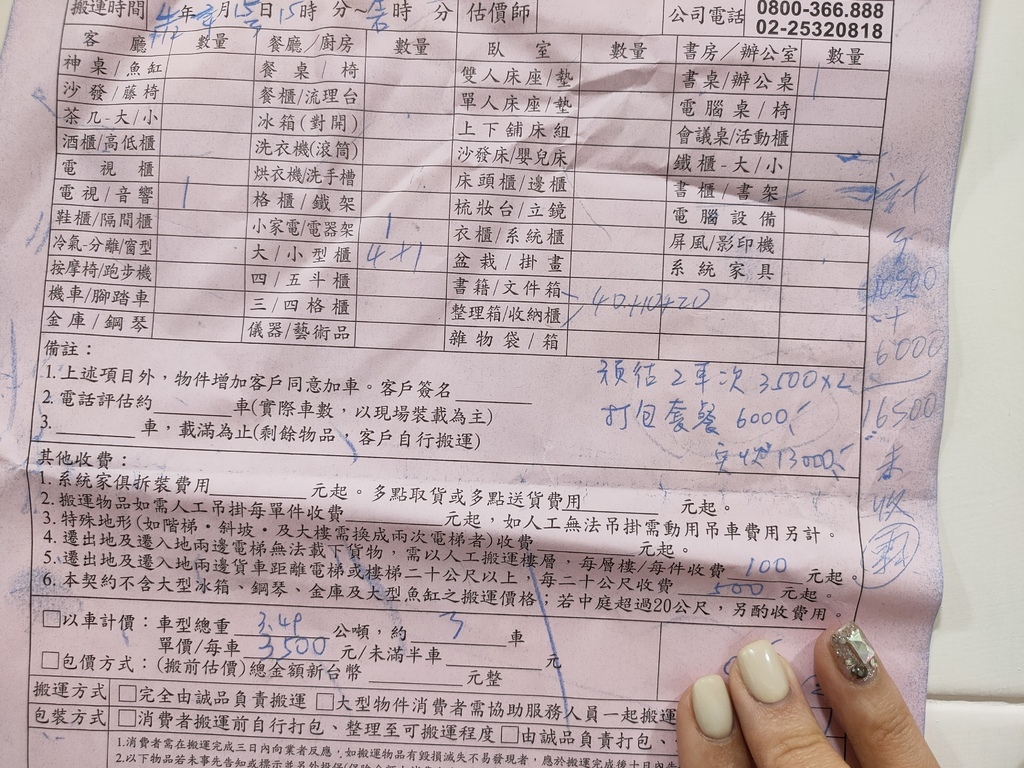 搬運時間 年 月15日15時 分~ 時 分 估價師 公司電話 0800-366.888
02-25320818
客廳 數量 餐廳/廚房 數量 臥室 數量 書房/辦公室 數量
神桌/魚缸 餐桌/椅 雙人床座/墊 書桌/辦公桌 1
沙發/藤椅 餐櫃/流理台 單人床座/墊 電腦桌/椅
茶几-大/小 冰箱(對開) 上下舖床組 會議桌/活動櫃
酒櫃/高低櫃 洗衣機(滾筒) 沙發床/嬰兒床 鐵櫃-大/小
電視櫃 烘衣機/洗手槽 床頭櫃/邊櫃 書櫃/書架 計
電視/音響 1 格櫃/鐵架 梳妝台/立鏡 電腦設備
鞋櫃/隔間櫃 小家電/電器架 1 衣櫃/系統櫃 屏風/影印機
冷氣-分離/窗型 大/小型櫃 4+1 盆栽/掛畫 系統家具 10500
按摩椅/跑步機 四/五斗櫃 書籍/文件箱 40+10+20
機車/腳踏車 三/四格櫃 整理箱/收納櫃 6000
金庫/鋼琴 儀器/藝術品 雜物袋/箱
備註:
1.上述項目外,物件增加客戶同意加車。客戶簽名 預估2車次 3500x2 16500
2.電話評估約 車(實際車數,以現場裝載為主) 打包套餐 6000
3. 車,載滿為止(剩餘物品;客戶自行搬運) 13000 未收
其他收費:
1.系統家俱拆裝費用 元起。多點取貨或多點送貨費用 元起。
2.搬運物品如需人工吊掛每單件收費 元起,如人工無法吊掛需動用吊車費用另計。
3.特殊地形(如階梯·斜坡·及大樓需換成兩次電梯者)收費 元起。
4.遷出地及遷入地兩邊電梯無法載下貨物,需以人工搬運樓層,每層樓/每件收費 100 元起。
5.遷出地及遷入地兩邊貨車距離電梯或樓梯二十公尺以上,每二十公尺收費 500 元起。
6.本契約不含大型冰箱、鋼琴、金庫及大型魚缸之搬運價格;若中庭超過20公尺,另酌收費用。
□以車計價:車型總重 3.49 公噸,約 3 車
單價/每車 3500 元/未滿半車 元
□包價方式:(搬前估價)總金額新台幣 元整
搬運方式 □完全由誠品負責搬運 □大型物件消費者需協助服務人員一起搬運
包裝方式 □消費者搬運前自行打包、整理至可搬運程度 □由誠品負責打包、
1.消費者需在搬運完成三日內向業者反應,如搬運物品有毀損滅失不易發現者,應於搬運完成後十日內